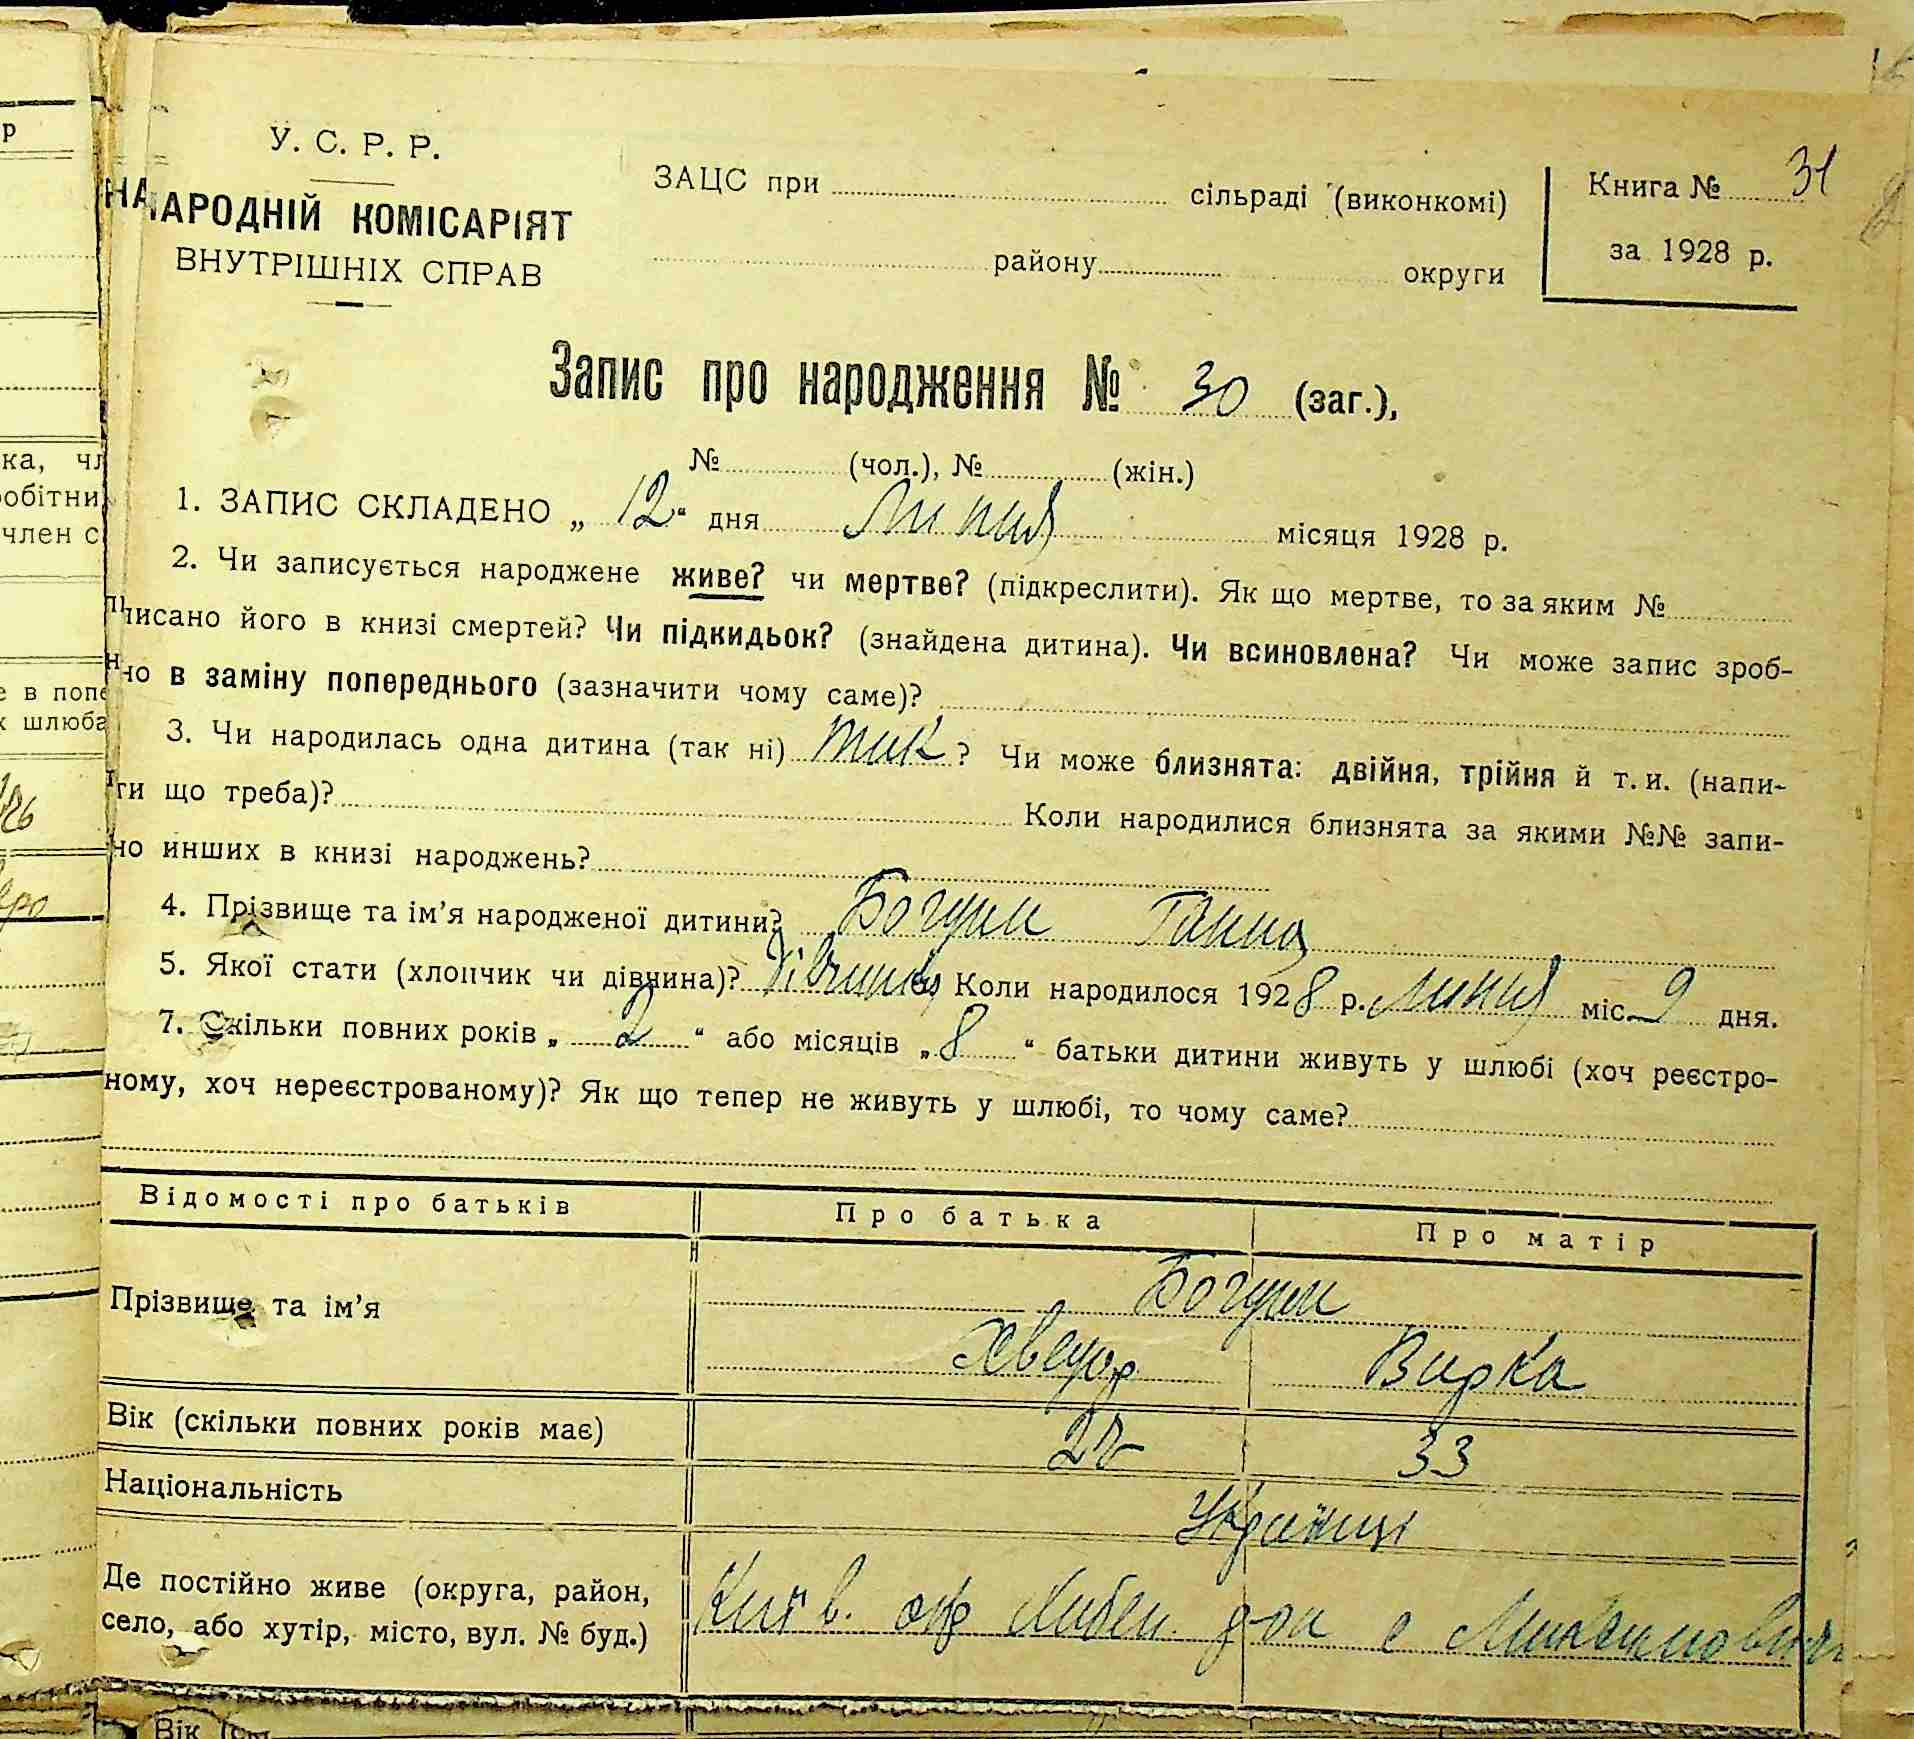 У. С. Р. Р.
НАРОДНІЙ КОМІСАРІЯТ
ВНУТРІШНІХ СПРАВ
ЗАЦС при сільраді (виконкомі)
району округи
Книга № 31
за 1928 р.
Запис про народження № 30 (заг.),
№ (чол.), № (жін.)
1. ЗАПИС СКЛАДЕНО „ 12 “ дня Липня місяця 1928 р.
2. Чи записується народжене живе? чи мертве? (підкреслити). Як що мертве, то за яким №
писано його в книзі смертей? Чи підкидьок? (знайдена дитина). Чи всиновлена? Чи може запис зроб-
но в заміну попереднього (зазначити чому саме)?
3. Чи народилась одна дитина (так ні) так ? Чи може близнята: двійня, трійня й т. и. (напи-
ти що треба)? Коли народилися близнята за якими №№ запи-
но инших в книзі народжень?
4. Прізвище та ім’я народженої дитини? Богун Ганна
5. Якої стати (хлопчик чи дівчина)? Дівчинка Коли народилося 1928 р. Липня міс. 9 дня.
7. Скільки повних років „ 2 “ або місяців „ 8 “ батьки дитини живуть у шлюбі (хоч реєстро-
ному, хоч нереєстрованому)? Як що тепер не живуть у шлюбі, то чому саме?
Відомості про батьків Про батька Про матір
Прізвище та ім’я Богун
Хведор Вирка
Вік (скільки повних років має) 33
Національність Українці
Де постійно живе (округа, район,
село, або хутір, місто, вул. № буд.) Київ. окр р-он с
Вік
р
ка, чл
робітни
член с
е в попе
х шлюба